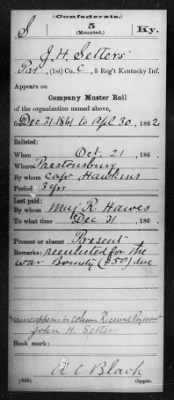 (Confederate.)
S 5 Ky.
(Mounted.)
J. H. Setters
Pvt, (1st) Co. C, 5 Reg't Kentucky Inf.
Appears on
Company Muster Roll
of the organization named above,
for Dec 31 1861 to Apl 30, 1862
Enlisted:
When Oct 21, 186
Where Prestonsburg
By whom Capt Hawkins
Period 3 yrs
Last paid:
By whom Maj R. Hawes
To what time Dec 31, 186
Present or absent Present
Remarks: reenlisted for the
war Bounty ($50) due
name appears in column Received Payment
John H. Setters
Book mark:
A C Black
(642) Copyist.